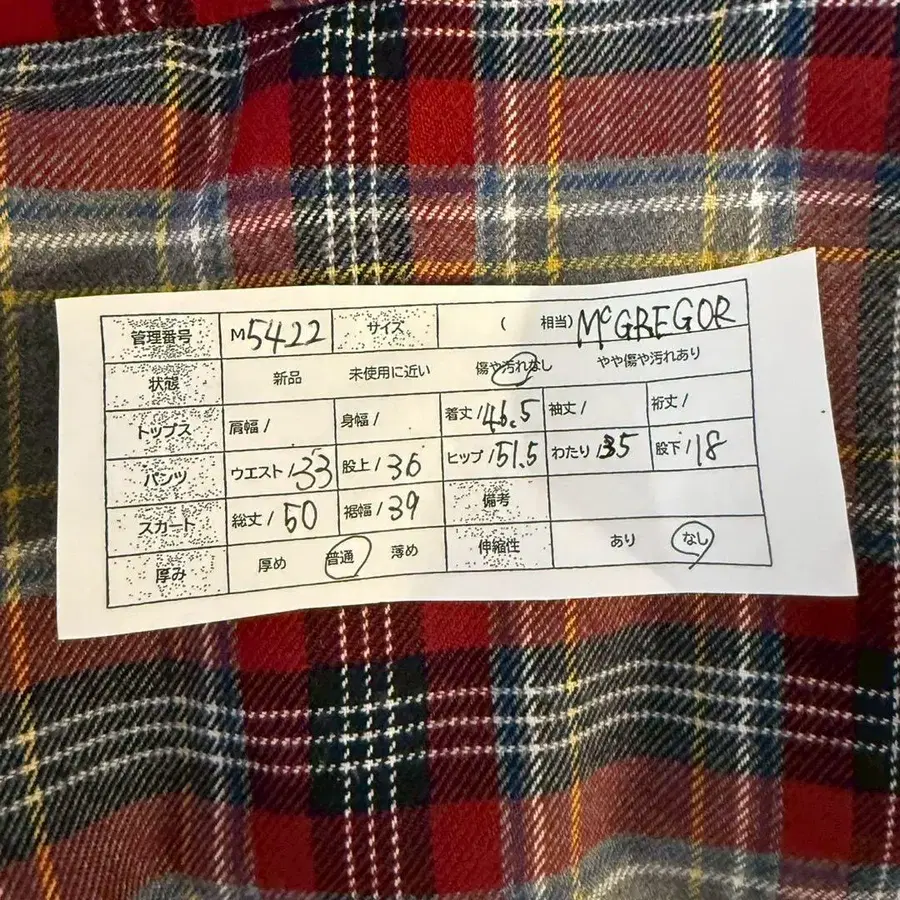 管理番号 M5422 サイズ ( 相当) McGREGOR
状態 新品 未使用に近い 傷や汚れなし やや傷や汚れあり
トップス 肩幅 / 身幅 / 着丈 / 46.5 袖丈 / 裄丈 /
パンツ ウエスト / 33 股上 / 36 ヒップ / 51.5 わたり / 35 股下 / 18
スカート 総丈 / 50 裾幅 / 39 備考
厚み 厚め 普通 薄め 伸縮性 あり なし